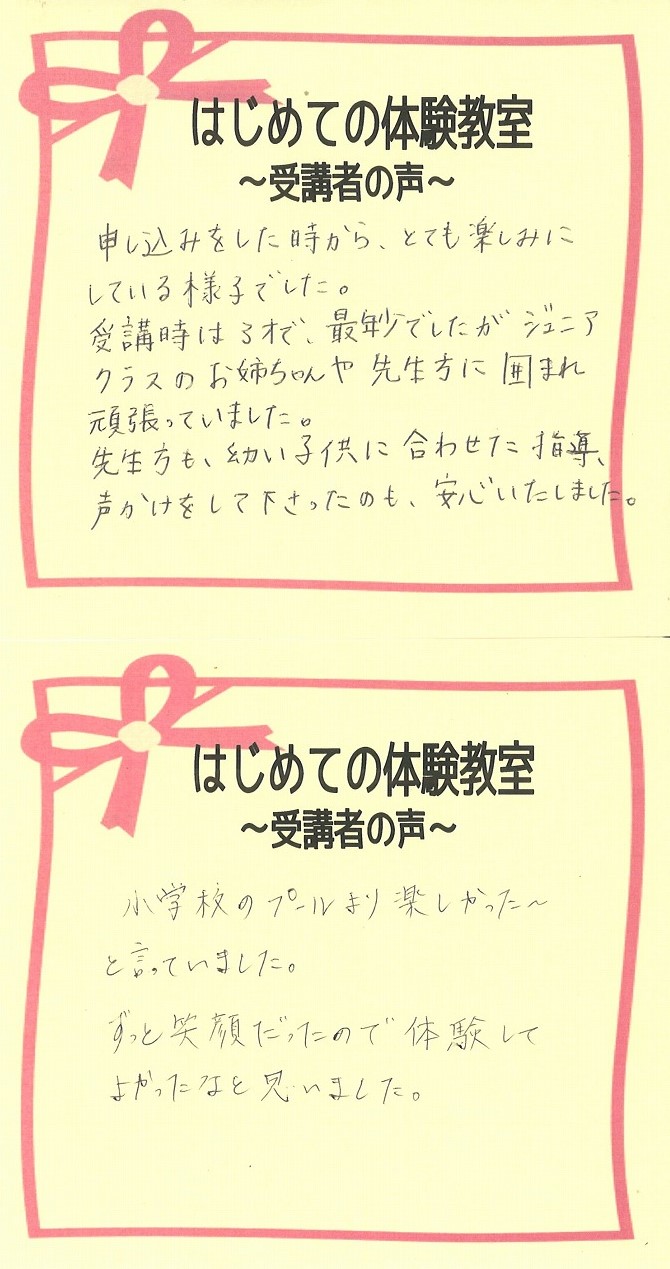 はじめての体験教室
～受講者の声～
申し込みをした時から、とても楽しみに
している様子でした。
受講時は3才で、最年少でしたが ジュニア
クラスのお姉ちゃんや 先生方に 囲まれ
頑張っていました。
先生方も、幼い子供に 合わせた 指導、
声かけをして下さったのも、安心いたしました。
はじめての体験教室
～受講者の声～
小学校のプールより楽しかった～
と言っていました。
ずっと笑顔だったので 体験して
よかったなと思いました。